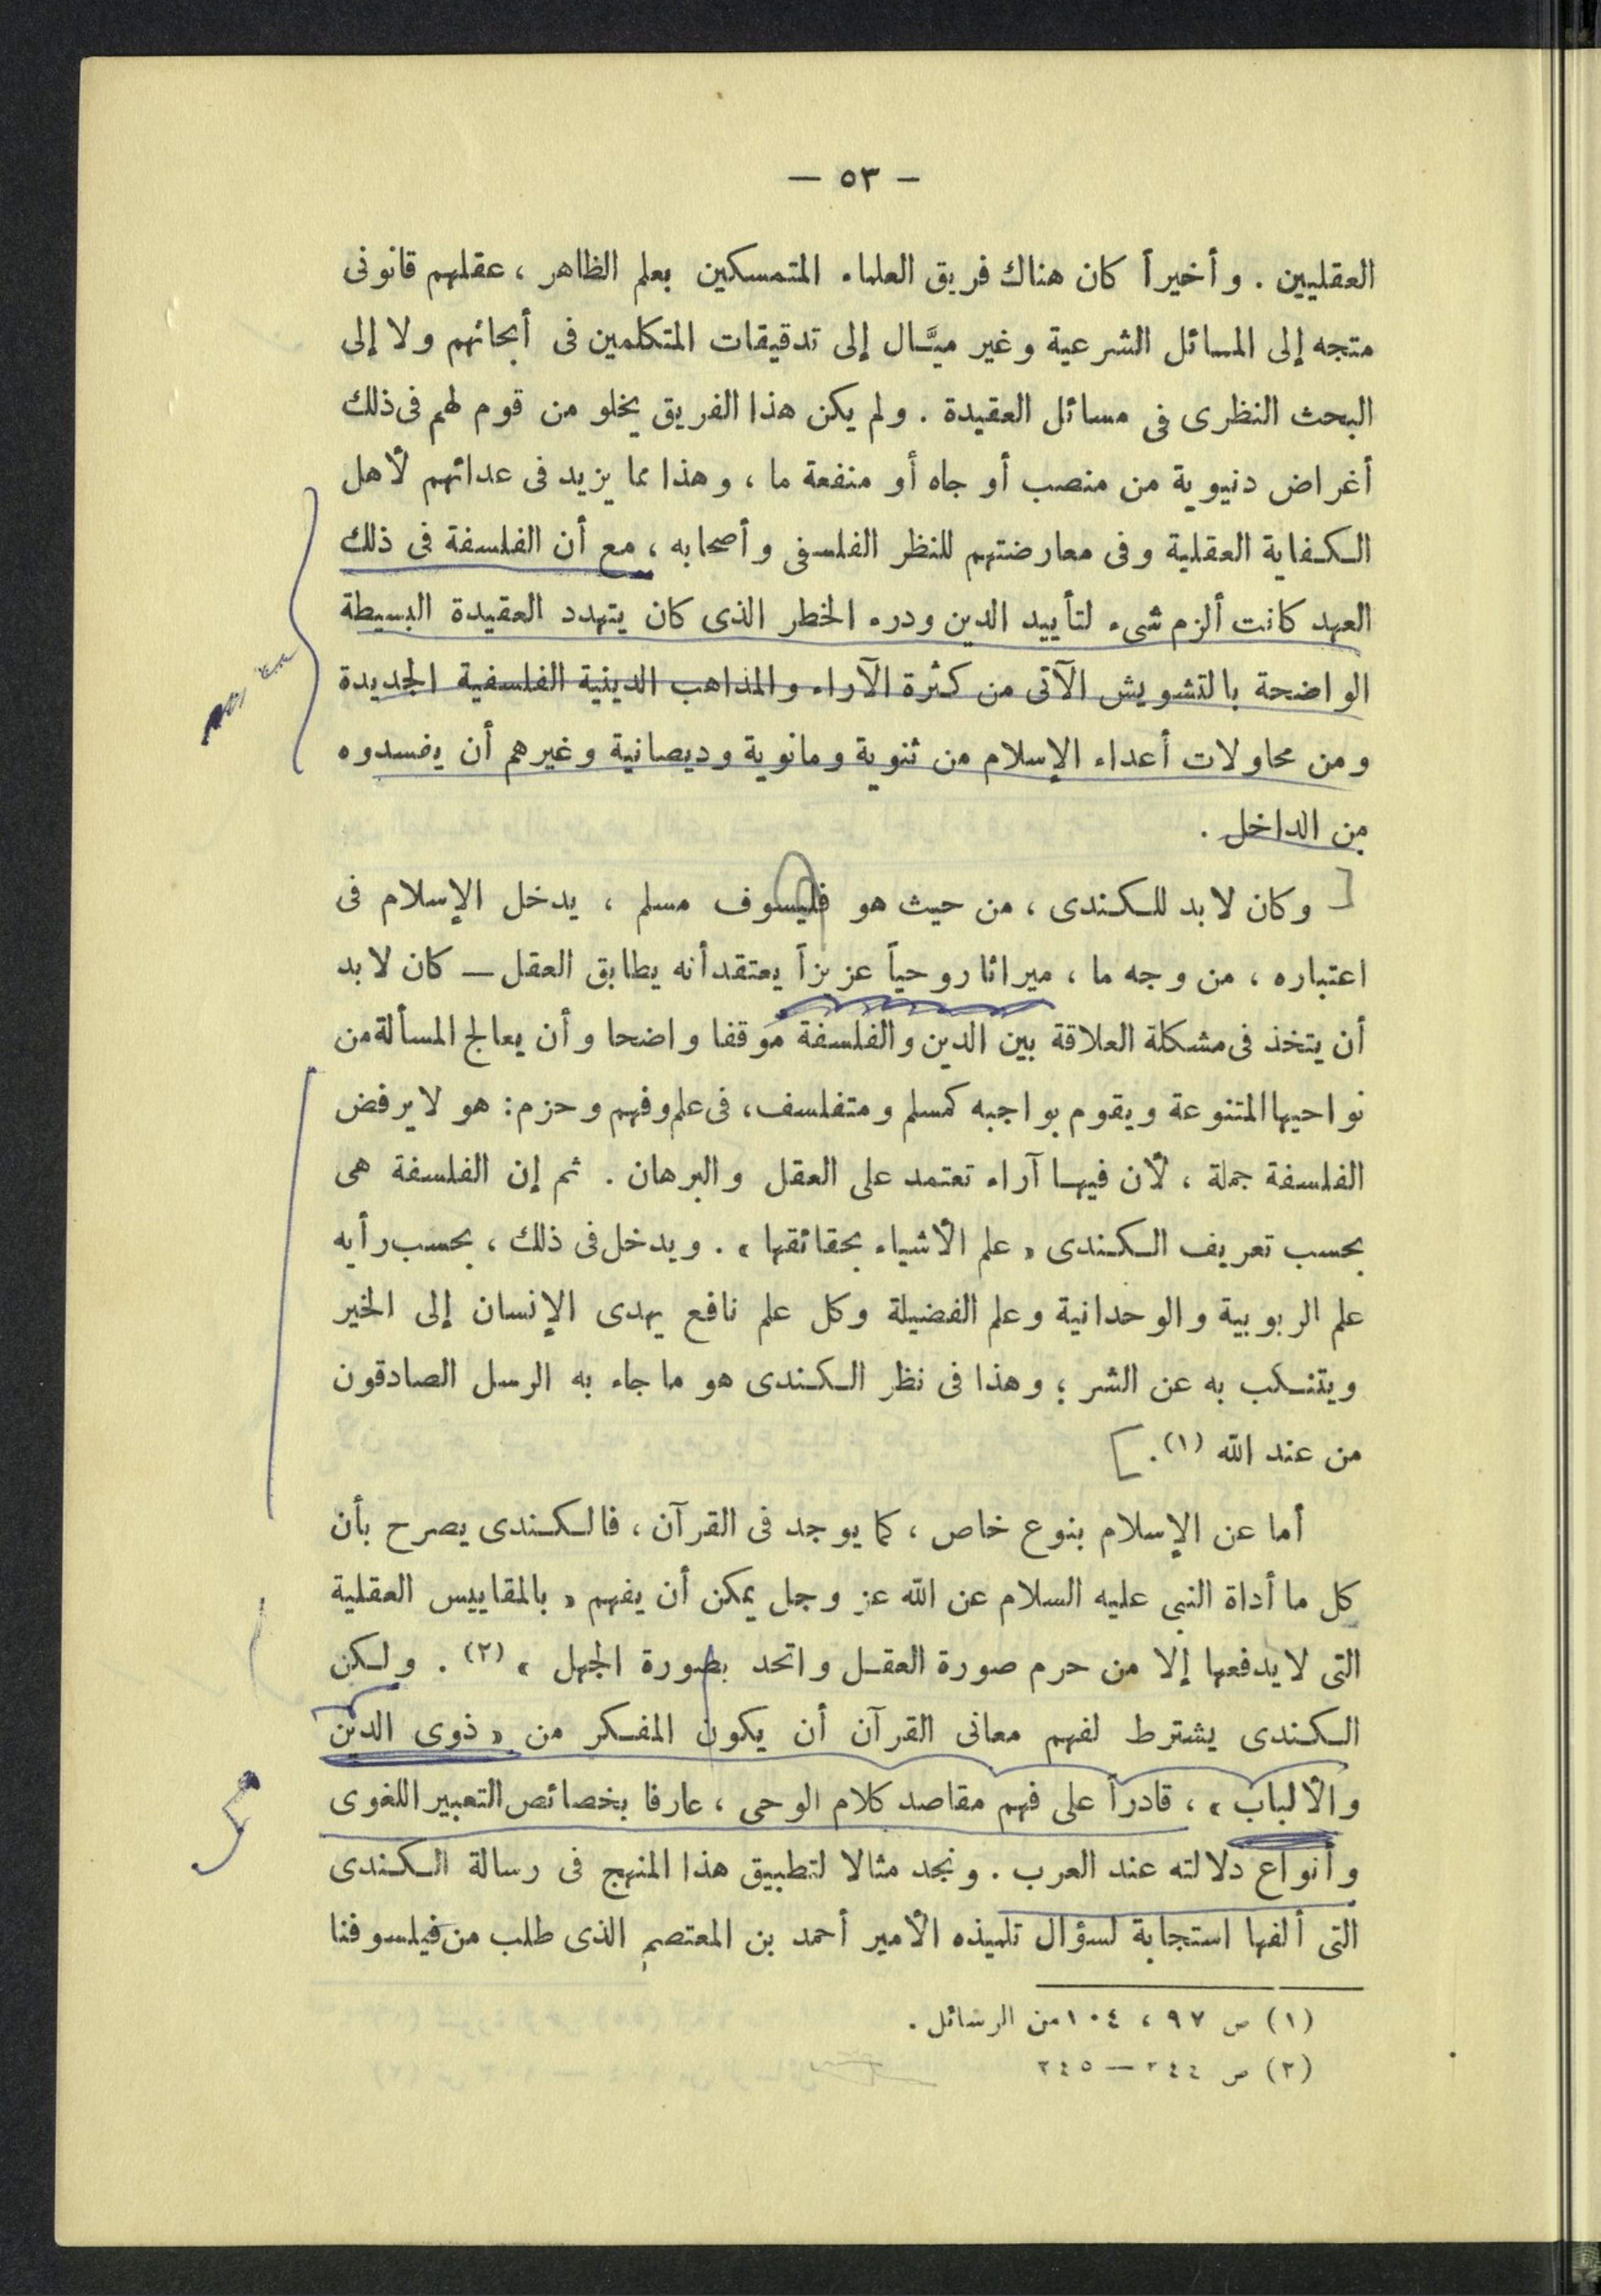 — ٥٣ —
العقليين . وأخيراً كان هناك فريق العلماء المتمسكين بعلم الظاهر ، عقلهم قانونى
متجه إلى المسائل الشرعية وغير ميَّـال إلى تدقيقات المتكلمين فى أبحاثهم ولا إلى
البحث النظرى فى مسائل العقيدة . ولم يكن هذا الفريق يخلو من قوم لهم فى ذلك
أغراض دنيوية من منصب أو جاه أو منفعة ما ، وهذا مما يزيد فى عدائهم لأهل
الكفاية العقلية وفى معارضتهم للنظر الفلسفى وأصحابه ، مع أن الفلسفة فى ذلك
العهد كانت ألزم شىء لتأييد الدين ودرء الخطر الذى كان يتهدد العقيدة البسيطة
الواضحة بالتشويش الآتى من كثرة الآراء والمذاهب الدينية الفلسفية الجديدة
ومن محاولات أعداء الإسلام من ثنوية ومانوية وديصانية وغيرهم أن يفسدوه
من الداخل .
[ وكان لابد للكندى ، من حيث هو فليسوف مسلم ، يدخل الإسلام فى
اعتباره ، من وجه ما ، ميراثا روحياً عزيزاً يعتقد أنه يطابق العقل — كان لابد
أن يتخذ فى مشكلة العلاقة بين الدين والفلسفة موقفا واضحا وأن يعالج المسألة من
نواحيها المتنوعة ويقوم بواجبه كمسلم ومتفلسف، فى علم وفهم وحزم: هو لا يرفض
الفلسفة جملة ، لأن فيها آراء تعتمد على العقل والبرهان . ثم إن الفلسفة هى
بحسب تعريف الكندى « علم الأشياء بحقائقها » . ويدخل فى ذلك ، بحسب رأيه
علم الربوبية والوحدانية وعلم الفضيلة وكل علم نافع يهدى الإنسان إلى الخير
ويتنكب به عن الشر ؛ وهذا فى نظر الكندى هو ما جاء به الرسل الصادقون
من عند الله (١). ]
أما عن الإسلام بنوع خاص ، كما يوجد فى القرآن ، فالكندى يصرح بأن
كل ما أداة النبى عليه السلام عن الله عز وجل يمكن أن يفهم « بالمقاييس العقلية
التى لا يدفعها إلا من حرم صورة العقل واتحد بصورة الجهل » (٢) . ولكن
الكندى يشترط لفهم معانى القرآن أن يكون المفكر من « ذوى الدين
والألباب » ، قادراً على فهم مقاصد كلام الوحى ، عارفا بخصائص التعبير اللغوى
وأنواع دلالته عند العرب . ونجد مثالا لتطبيق هذا المنهج فى رسالة الكندى
التى ألفها استجابة لسؤال تلميذه الأمير أحمد بن المعتصم الذى طلب من فيلسوفنا
(١) ص ٩٧ ، ١٠٤ من الرسائل .
(٢) ص ٢٤٤ — ٢٤٥